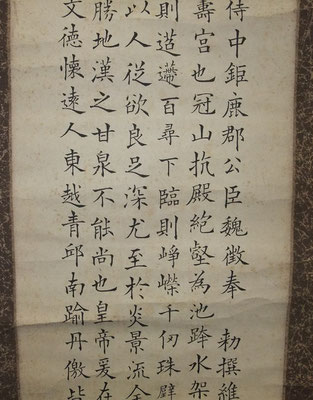 侍中鉅鹿郡公臣魏徵奉 勅撰維
壽宮也冠山抗殿絶壑為池跨水架
則迢遰百尋下臨則崢嶸千仞珠璧
以人從欲良足深尤至於炎景流金
勝地漢之甘泉不能尚也皇帝爰在
文德懷遠人東越青邱南踰丹儌皆